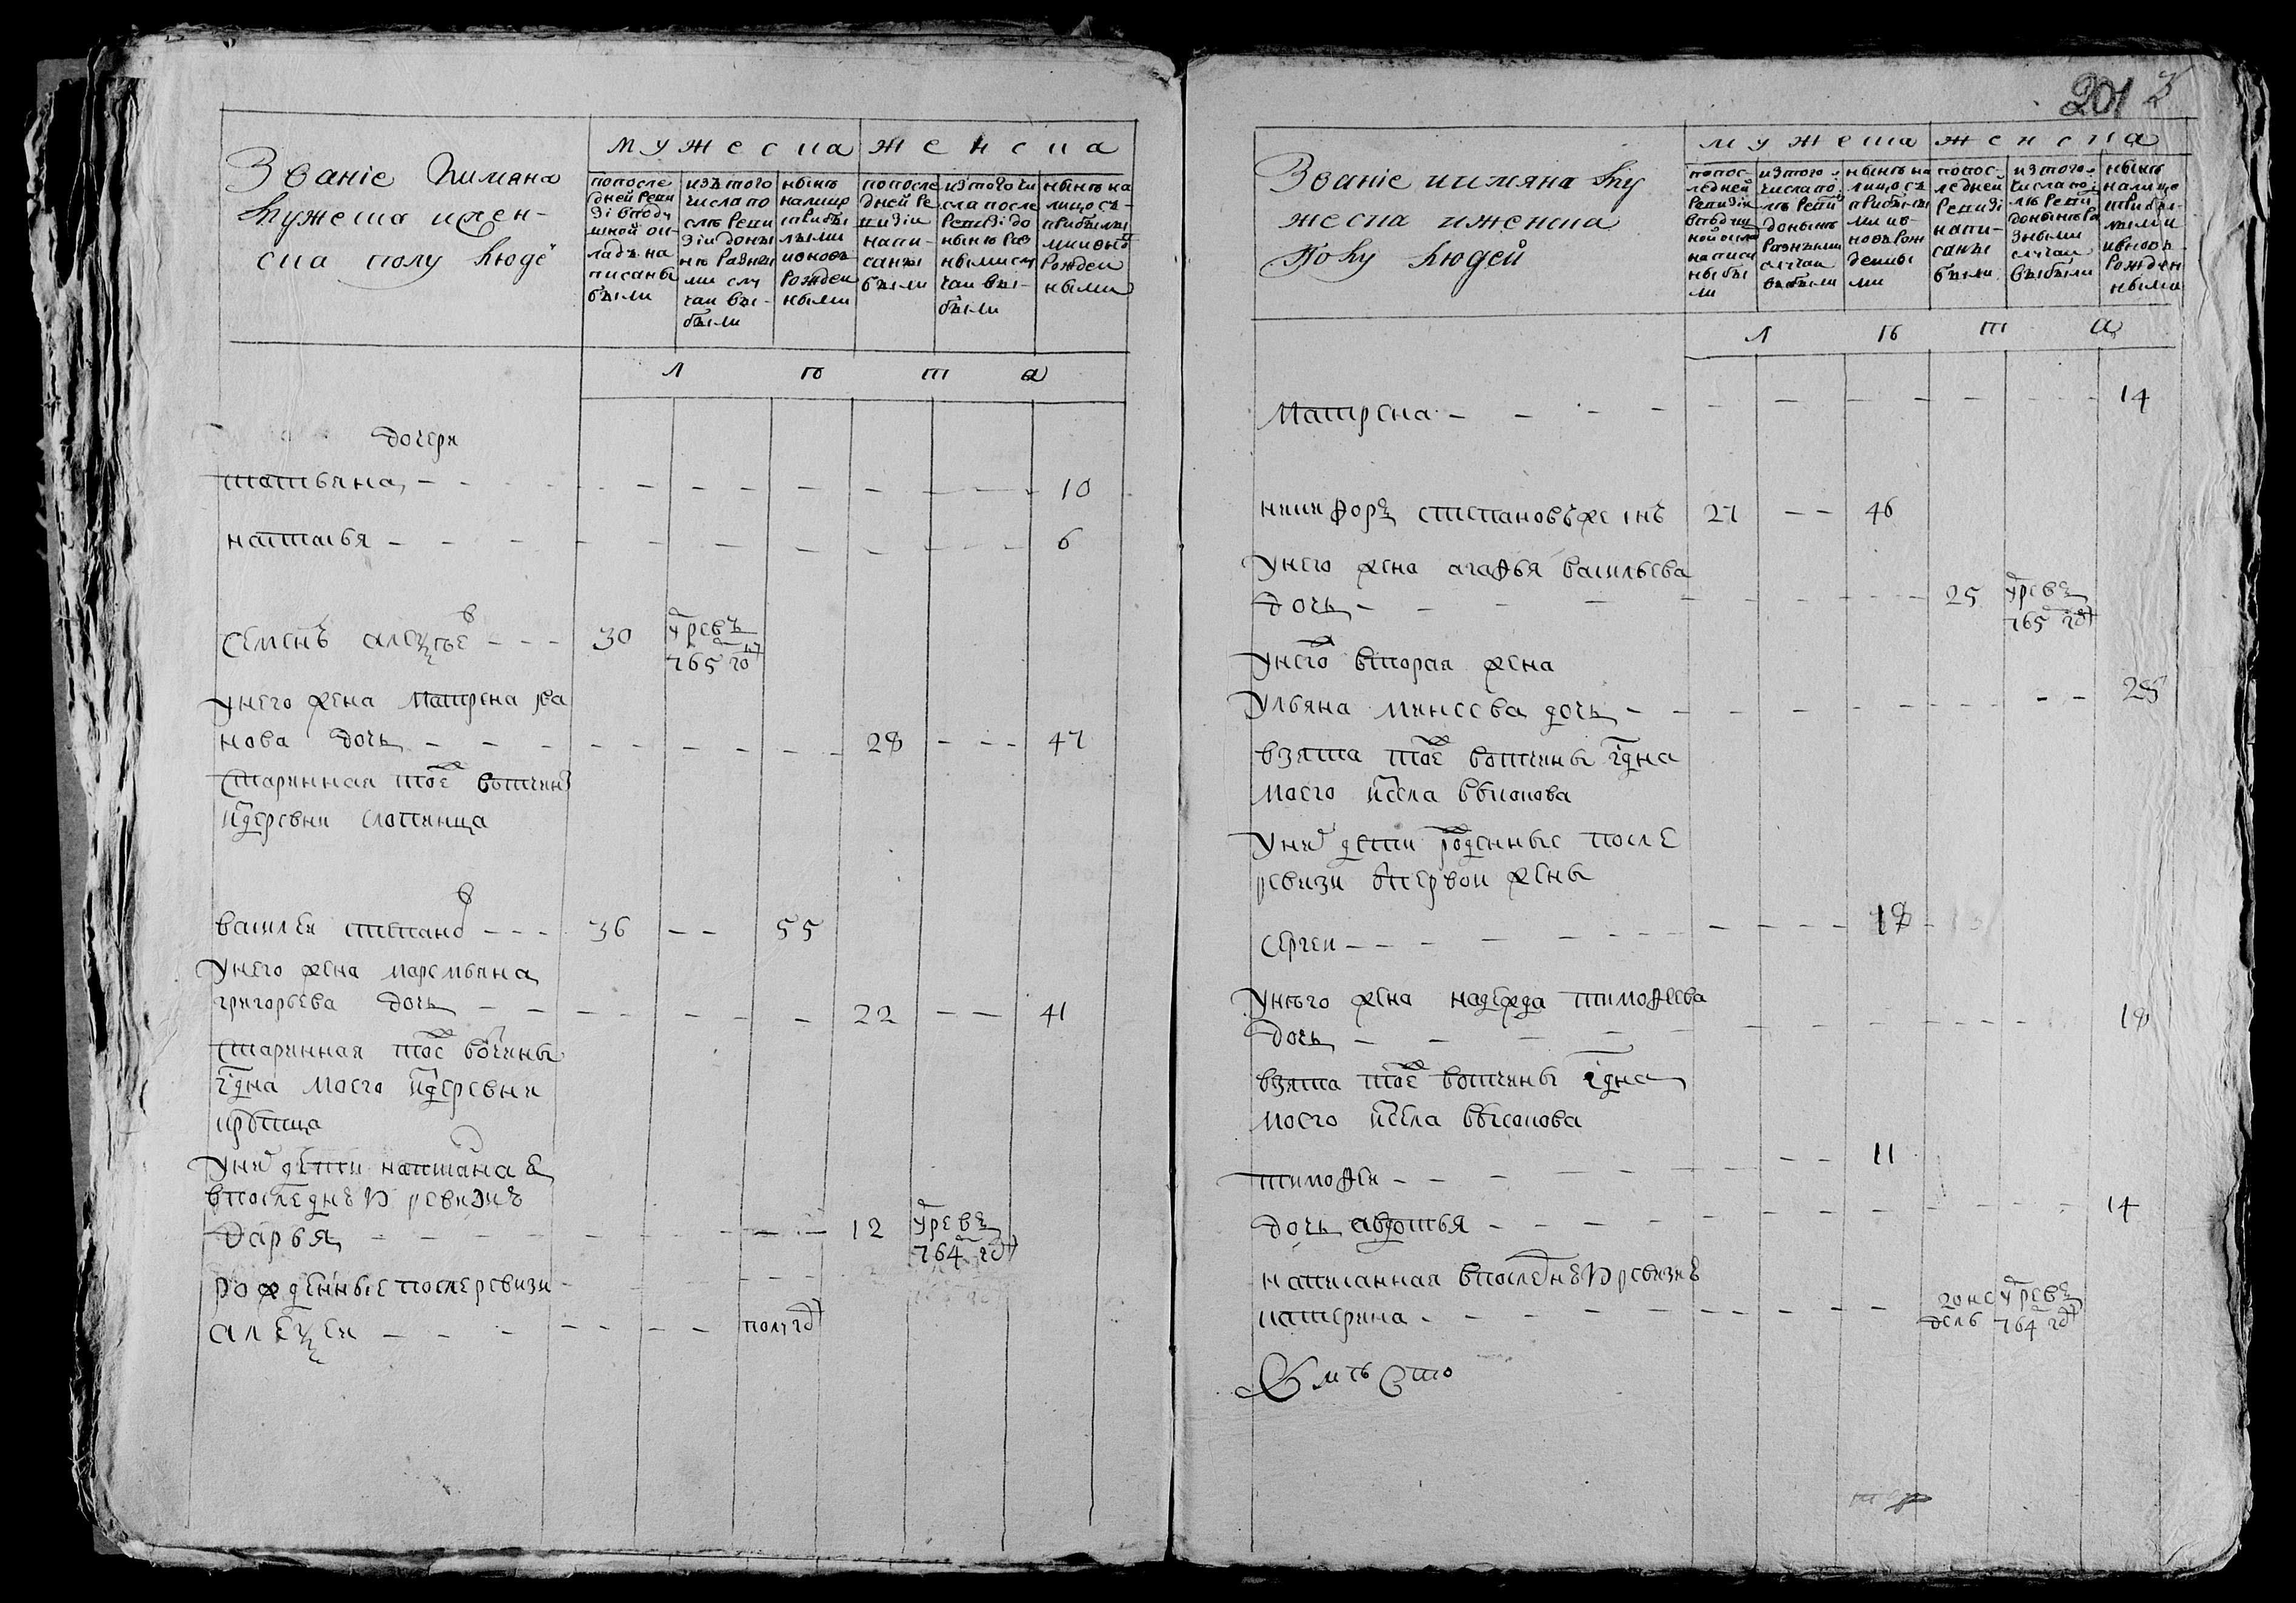 Званіе Иимяна
Мужеска ижен-
ска полу Люде
мужеска женска
попосле
дней Реви
зіи вподу
шной ок-
ладъ на
писаны
были
изътого
числа по
слѣ Реви
зіи доны
нѣ Разны
ми слу
чаи вы-
были
нынѣ
налицо
спрыбы
лыми
ивновь
Рожден
ными
попосле
дней Ре
визіи
напи-
саны
были
изтого чи
сла после
Ревизіи до
нынѣ раз
нымислу
чаи вы-
были
нынѣ на
лицо съ
прибылы
ми ивно
Рожден
ными
л ѣ т а
дочери
татьяна 10
наталья 6
семенъ алеѯѣе в 30 умре въ 765 году
унего жена матрена ива
нова дочь 28 47
старинная тоѣ вотчины
идеревни слопинца
василеи степано в 36 55
унего жена маремьяна
григорьева дочь 22 41
старинная тое вочины
гдна моего идеревни
уни дети написаные
впоследнеи ревизиѣ
дарья 12 умре въ 764 году
рожденные после ревизи
алеѯеи полугод
201
Званіе иимяна Му
жеска иженска
Полу Людей
мужеска женска
попос-
ледней
Ревизіи
вподуш
ной оклад
написа
ны бы
ли
изтого
числа по
слѣ Реви
донынѣ
Разными
случаи
выбыли
нынѣ на
лицо съ
прибылы
ми ив-
новь Рож
денны
ми
попос-
ледней
Ревизіи
напи-
саны
были
изтого
числа по
слѣ Реви
донынѣ Ра
зными
случаи
выбыли
нынѣ
налицо
прибы-
лыми
ивновь
Рожден
ными
л ѣ т а
Матрена 14
никифоръ степановъ сынъ 27 46
унего жена агафья васильева
дочь 25 умре въ 765 году
унего вторая жена
ульяна минеева дочь 28
взята тоѣ вотчины гдна
моего исела
уни дети рожденные после
ревизи отпервои жены
сергеи 18
унѣго жена надежда тимофеева
дочь 18
взята тоѣ вотчины гдна
моего исела высокова
тимофеи 11
дочь авдотья 14
написанная впоследнеи ревизиѣ
катерина 20 не дель умре въ 764 году